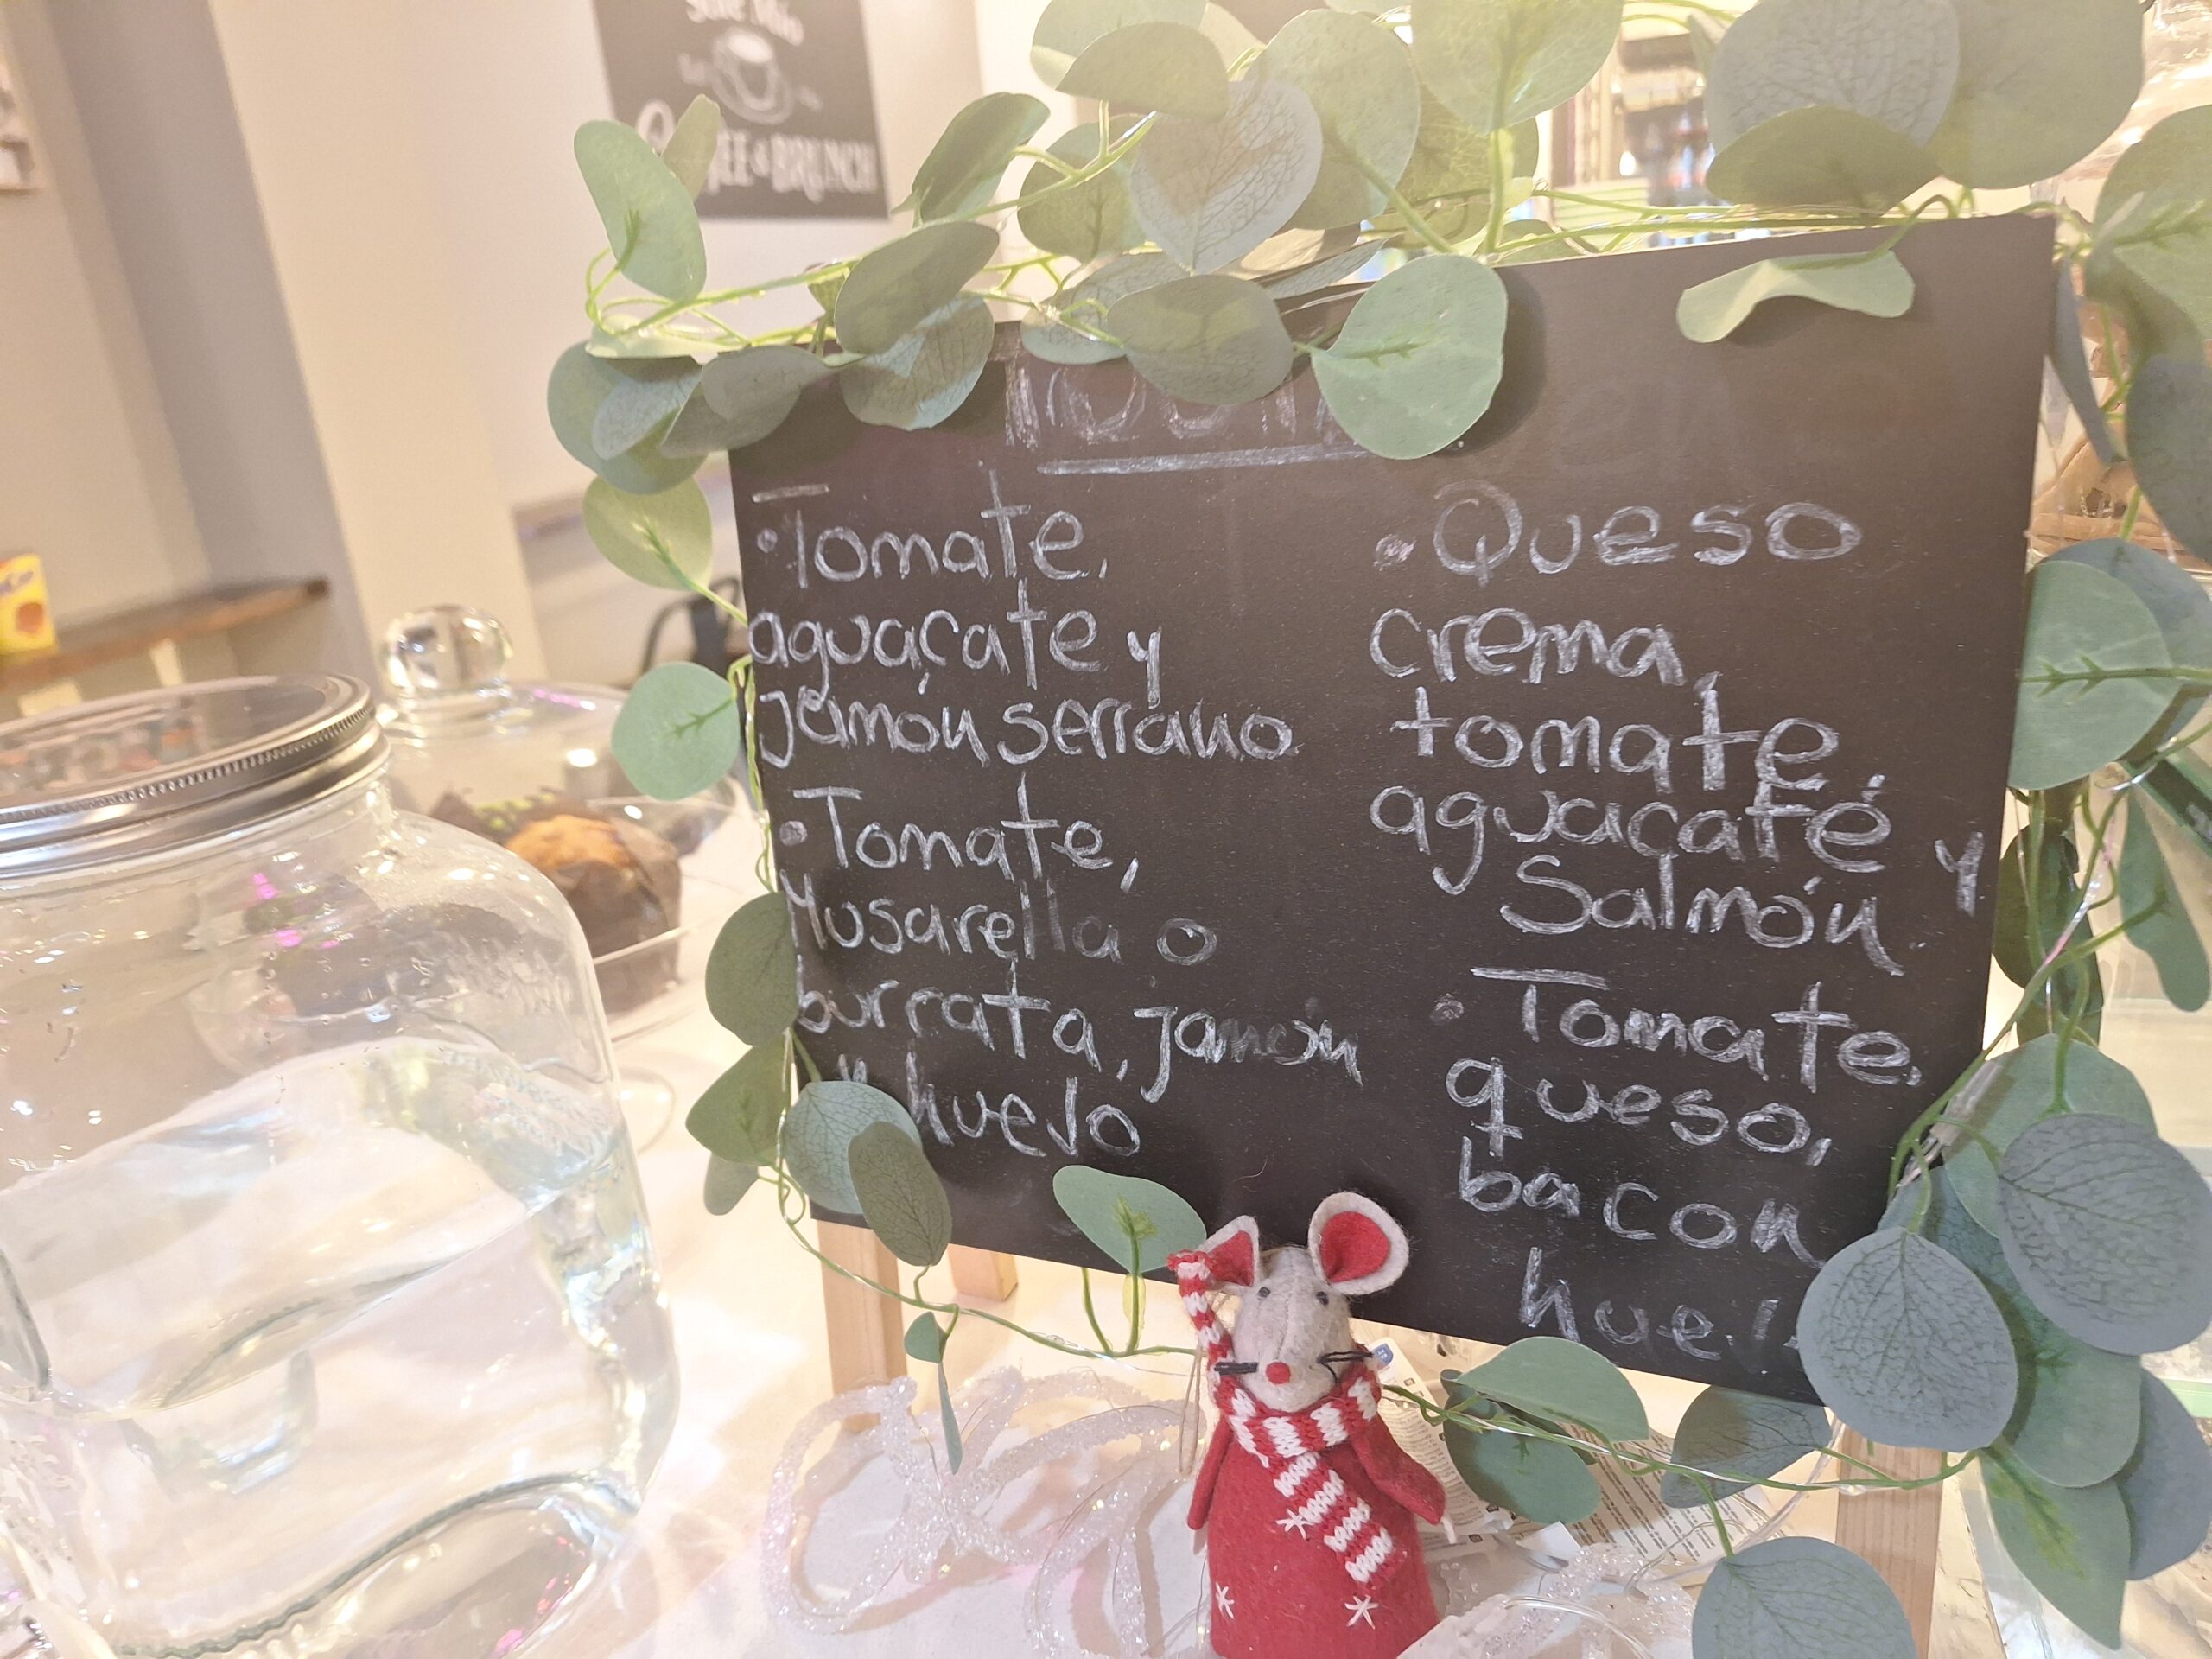 & BRUNCH
• Tomate,
aguacate y
jamón serrano
• Tomate,
Musarella o
burrata, jamón
y huevo
• Queso
crema,
tomate,
aguacate y
Salmón.
• Tomate,
queso,
bacon